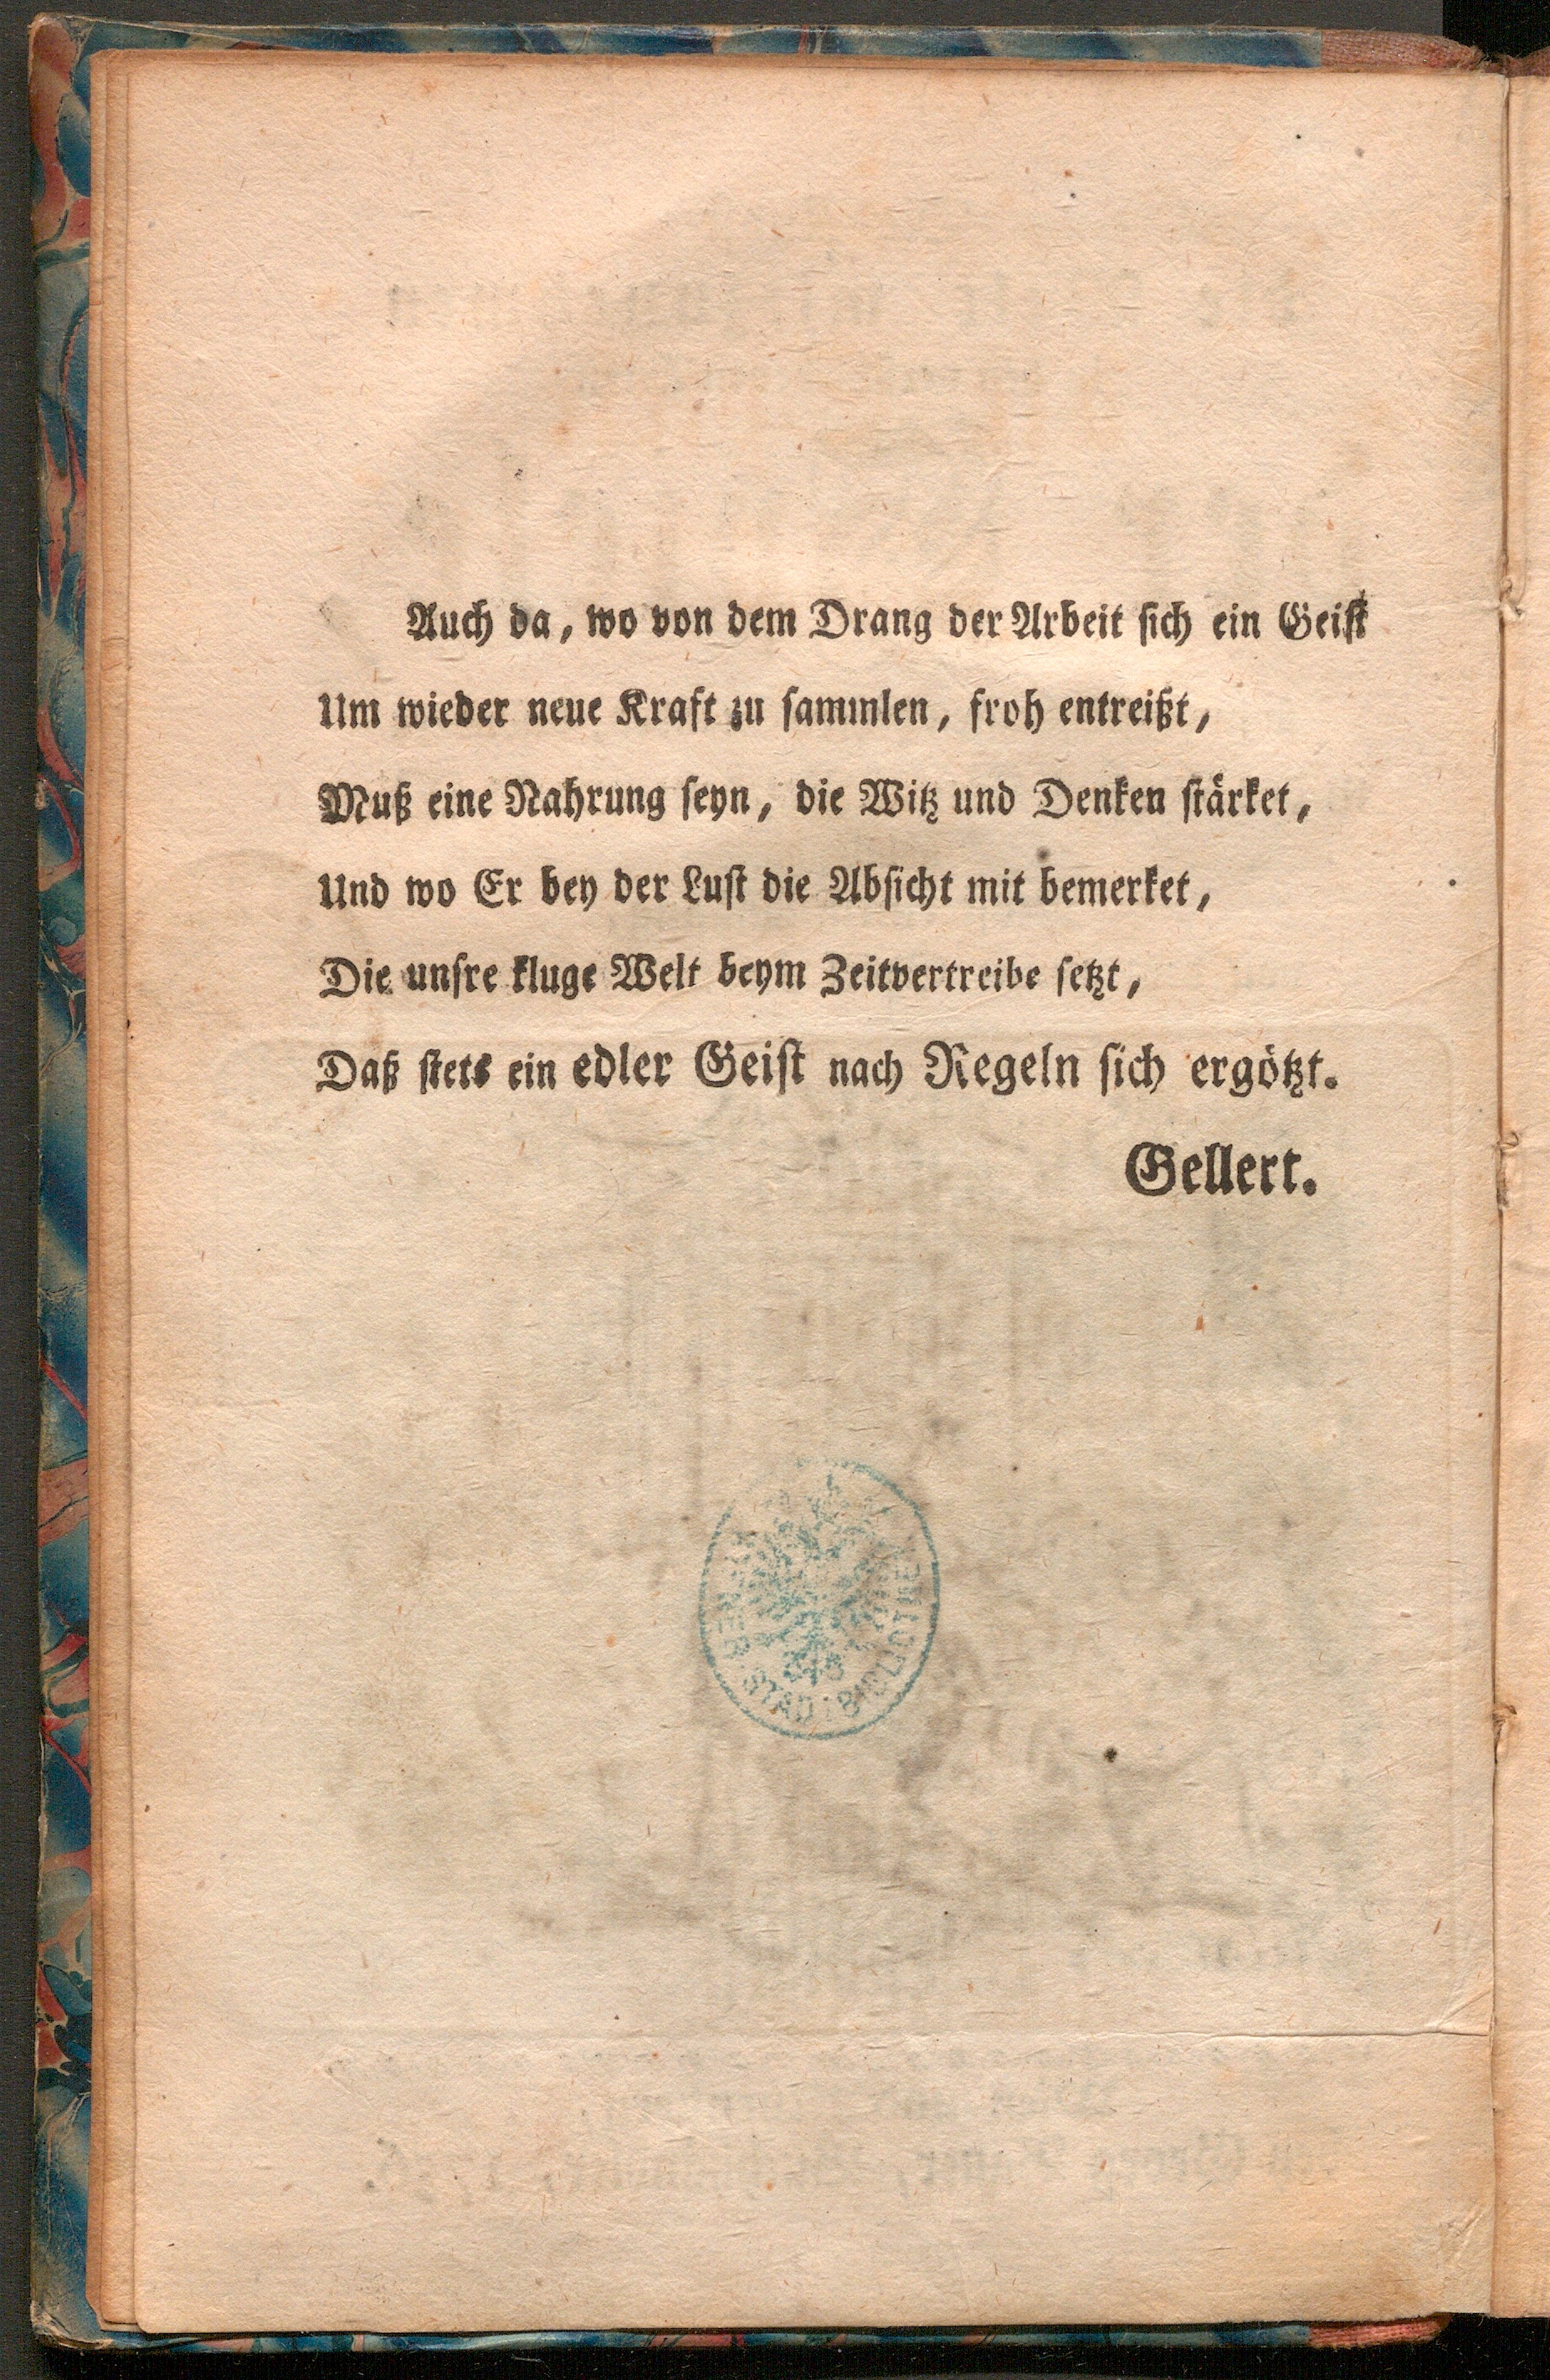 Auch da, wo von dem Drang der Arbeit sich ein Geist
Um wieder neue Kraft zu sammlen, froh entreißt,
Muß eine Nahrung seyn, die Witz und Denken stärket,
Und wo Er bey der Lust die Absicht mit bemerket,
Die unsre kluge Welt beym Zeitvertreibe setzt,
Daß stets ein edler Geist nach Regeln sich ergötzt.
Gellert.
STADTBIBLIOTHEK